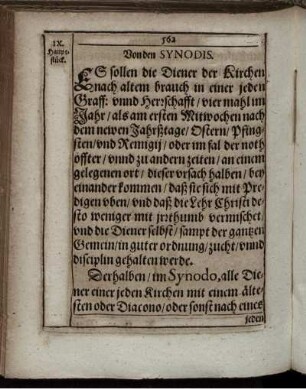 562
IX.
Haupt-
stück.
Von den SYNODIS.
ES sollen die Diener der Kirchen
nach altem brauch in einer jeden
Graff: vnnd Herrschafft / vier mahl im
Jahr / als am ersten Mitwochen nach
dem newen Jahrßtage / Ostern / Pfing-
sten / vnd Remigij / oder im fal der noth
öffter / vnnd zu andern zeiten / an einem
gelegenen ort / dieser vrsach halben / bey
einander kommen / daß sie sich mit Pre-
digen vben / vnd daß die Lehr Christi de-
sto weniger mit jrrthumb vermischet /
vnd die Diener selbst / sampt der gantzen
Gemein / in guter ordnung / zucht / vnnd
disciplin gehalten werde.
Derhalben / im Synodo, alle Die-
ner einer jeden Kirchen mit einem älte-
sten oder Diacono / oder sonst nach eines
jeden